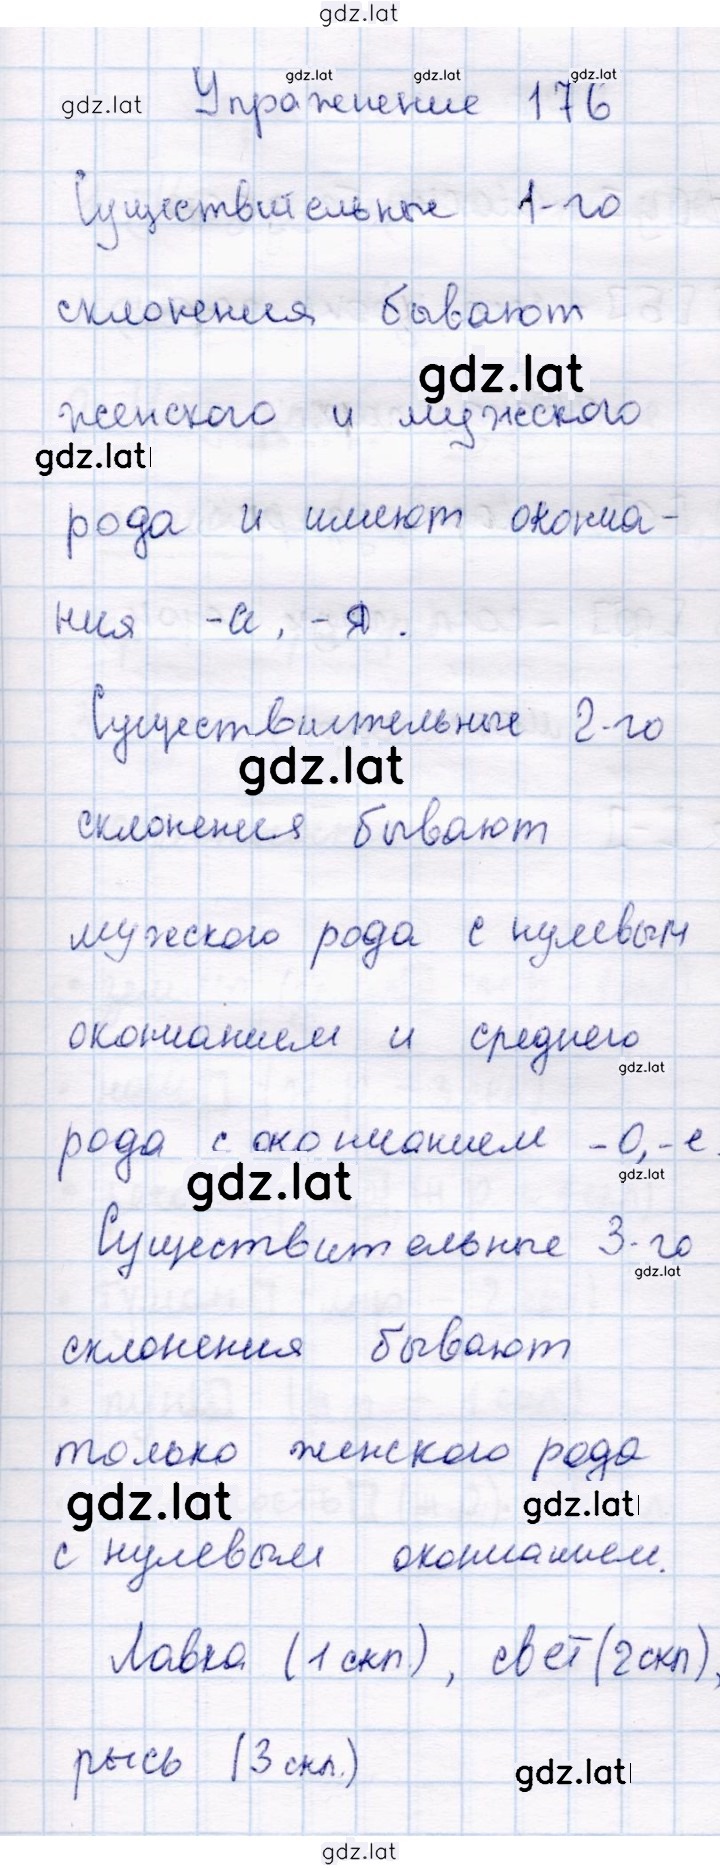 gdz.lat
gdz.lat gdz.lat gdz.lat
gdz.lat Упражнение 176
Существительные 1-го
склонения бывают
gdz.lat
женского и мужского
gdz.lat
рода и имеют оконча-
ния -а, -я.
Существительные 2-го
gdz.lat
склонения бывают
мужского рода с нулевым
окончанием и среднего
gdz.lat
рода с окончанием -о, -е.
gdz.lat gdz.lat
Существительные 3-го
gdz.lat
склонения бывают
только женского рода
gdz.lat gdz.lat
с нулевым окончанием.
Лавка (1 скл.), свет (2 скл),
рысь (3 скл.)
gdz.lat
gdz.lat